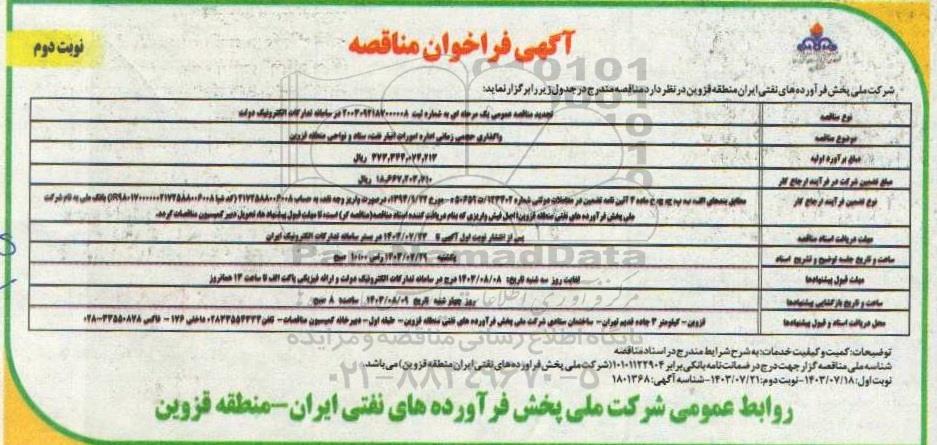 آگهی فراخوان مناقصه
نوبت دوم
شرکت ملی پخش فرآورده های نفتی ایران منطقه قزوین در نظر دارد مناقصه مندرج در جدول زیر را برگزار نماید:
نوع مناقصه تجدید مناقصه عمومی یک مرحله ای به شماره ثبت ۲۰۰۳۰۹۲۱۸۷۰۰۰۰۰۸ در سامانه تدارکات الکترونیک دولت
موضوع مناقصه واگذاری حجمی زمانی اداره امورات انبار نفت، ستاد و نواحی منطقه قزوین
مبلغ برآورد اولیه ۳۷۳,۳۴۴,۰۷۴,۲۱۳ ریال
مبلغ تضمین شرکت در فرآیند ارجاع کار ۱۸,۶۶۷,۲۰۳,۷۱۰ ریال
نوع تضمین فرآیند ارجاع کار مطابق بندهای الف، ماده ۴ آئین نامه تضمین در معاملات دولتی شماره ۱۲۳۴۰۲/ت۵۰۶۵۹ه مورخ ۱۳۹۴/۹/۲۲ درصورت واریز وجه نقد، به حساب ۲۱۷۳۵۸۸۰۰۶۰۰۸ بانک ملی به نام شرکت
ملی پخش فرآورده های نفتی منطقه قزوین
مهلت دریافت اسناد مناقصه پس از انتشار نوبت اول آگهی تا ۱۴۰۳/۰۷/۲۳ در بستر سامانه تدارکات الکترونیک ایران
ساعت و تاریخ جلسه توضیح و تشریح اسناد یکشنبه ۱۴۰۳/۰۷/۲۹ راس ۱۰:۰۰ صبح
مهلت قبول پیشنهادها لغایت روز سه شنبه تاریخ: ۱۴۰۳/۰۸/۰۸ درج در سامانه تدارکات الکترونیک دولت و ارائه فیزیکی پاکت الف تا ساعت ۱۳ همانروز
ساعت و تاریخ بازگشایی پیشنهادها روز چهار شنبه تاریخ ۱۴۰۳/۰۸/۰۹ ساعت: ۸ صبح
محل دریافت اسناد و قبول پیشنهادها قزوین - کیلومتر ۳ جاده قدیم تهران - ساختمان ستادی شرکت ملی پخش فرآورده های نفتی منطقه قزوین - طبقه اول - دبیرخانه کمیسیون مناقصات - تلفن ۰۲۸۳۳۵۵۴۳۳۴ داخلی ۱۷۶ - فاکس ۳۳۵۵۰۸۷۸-۰۲۸
توضیحات: کمیت و کیفیت خدمات: به شرح شرایط مندرج در اسناد مناقصه
شناسه ملی مناقصه گزار جهت درج در ضمانت نامه بانکی برابر ۱۰۱۰۱۱۲۲۹۰۴ (شرکت ملی پخش فراورده های نفتی ایران منطقه قزوین) می باشد.
نوبت اول: ۱۴۰۳/۰۷/۱۸-نوبت دوم: ۱۴۰۳/۰۷/۲۱-شناسه آگهی: ۱۸۰۱۳۶۸
روابط عمومی شرکت ملی پخش فرآورده های نفتی ایران-منطقه قزوین
پایگاه اطلاع رسانی مناقصه و مزایده
۰۲۱-۸۸۳۴۹۶۷۰-۵